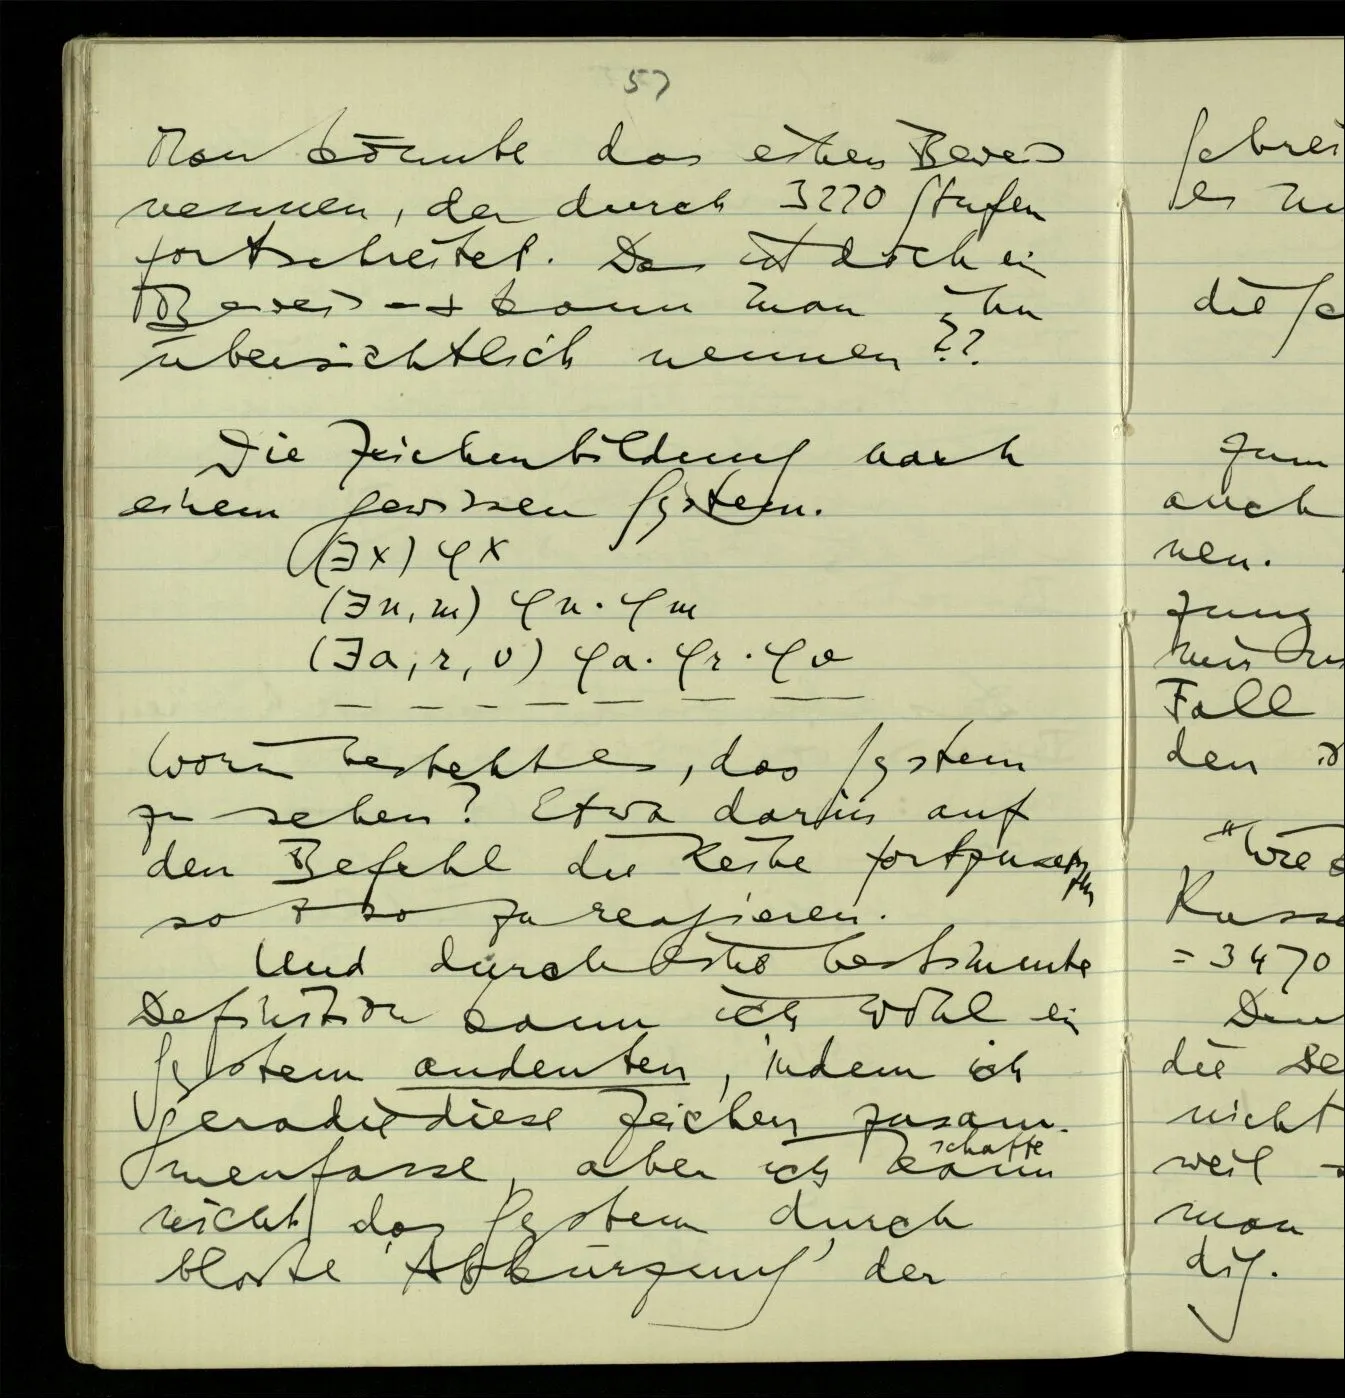 57
Man könnte das einen Beweis
nennen, der durch 3270 Stufen
fortschreitet. Das ist doch ein
Beweis – & kann man ihn
übersichtlich nennen??
Die Zeichenbildung nach
einem gewissen System.
(∃x) φx
(∃n, m) φn · φm
(∃a, r, v) φa · φr · φv
— — — — — — —
Worin besteht es, das System
zu sehen? Etwa darin auf
den Befehl die Reihe fortzusetzen
so & so zu reagieren.
Und durch bestimmte
Definition kann ich wohl ein
System andeuten, indem ich
gerade diese Zeichen zusam-
menfasse, aber ich kann schaffe
nicht das System durch
bloße 'Abkürzung' der
schrei
es
die
Zum
auch
nen.
zung
Fall
den
"Wie
Russe
= 3470
die De
nicht
weil
man
dig.